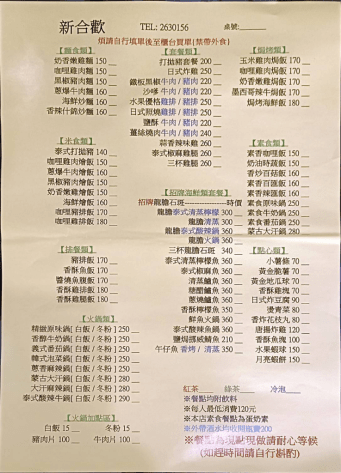 新合歡
TEL: 2630156
桌號:
煩請自行填單後至櫃台買單(禁帶外食)
【麵食類】
奶香嫩雞麵 150
咖哩雞肉麵 150
黑椒豬肉麵 150
蔥爆牛肉麵 160
海鮮炒麵 160
香辣什錦炒麵 160
【米食類】
泰式打拋豬 140
咖哩雞肉燴飯 150
蔥爆牛肉燴飯 160
黑椒豬肉燴飯 150
奶香嫩雞燴飯 150
海鮮燴飯 160
咖哩豬排飯 180
咖哩雞腿飯 180
【排餐類】
豬排飯 170
香酥魚飯 170
醬燒魚腹飯 170
香酥雞排飯 180
香酥雞腿飯 180
【火鍋類】
精緻原味鍋[ 白飯 / 冬粉 ] 250
香醇牛奶鍋[ 白飯 / 冬粉 ] 250
義式番茄鍋[ 白飯 / 冬粉 ] 250
韓式泡菜鍋[ 白飯 / 冬粉 ] 250
蔥香麻辣鍋[ 白飯 / 冬粉 ] 250
蒙古大汗鍋[ 白飯 / 冬粉 ] 290
大汗麻辣鍋[ 白飯 / 冬粉 ] 290
泰式酸辣鍋[ 白飯 / 冬粉 ] 290
【火鍋加點區】
白飯 15
冬粉 15
豬肉片 100
牛肉片 100
【套餐類】
打拋豬套餐 200
日式炸雞 250
鐵板黑椒牛肉 / 豬肉 220
沙嗲 牛肉 / 豬肉 220
水果優格雞排 / 豬排 250
日式照燒雞排 / 豬排 250
鹽酥 牛肉 / 豬肉 220
薑絲燒肉牛肉 / 豬肉 240
蒜香辣味雞 260
泰式椒麻雞腿 260
三杯雞 260
【招牌海鮮類套餐】
招牌龍膽石斑--------------時價
龍膽泰式清蒸檸檬 300
龍膽清蒸 300
龍膽泰式酸辣鍋 360
龍膽火鍋 360
三杯龍膽石斑 340
泰式清蒸檸檬魚 360
泰式椒麻魚 360
清蒸鱸魚 360
糖醋鱸魚 360
蔥燒鱸魚 360
香酥檸檬魚 350
鮮魚火鍋 360
泰式酸辣魚鍋 360
鹽焗挪威鯖魚 210
午仔魚 香烤 / 清蒸 350
【焗烤類】
玉米雞肉焗飯 170
咖哩雞肉焗飯 170
奶香嫩雞焗飯 170
墨西哥辣牛焗飯 170
焗烤海鮮飯 180
【素食類】
素香咖哩飯 150
奶油時蔬飯 150
香炒百菇飯 160
素香百匯飯 160
素香糖醋飯 160
素食原味鍋 250
素食牛奶鍋 250
素食番茄鍋 250
蒙古大汗鍋 250
【點心類】
小薯條 70
黃金脆薯 70
黃金地瓜球 70
香酥雞塊 70
日式炸豆腐 90
燙青菜 80
香炸花枝丸 80
唐揚炸雞 120
香酥魚塊 100
水果蝦球 150
月亮蝦餅 150
紅茶
綠茶
冷泡
※餐點均附飲料
※每人最低消費120元
※本店素食餐點為蛋奶素
※外帶湯水均收開瓶費200
※餐點為現點現做請耐心等候
(如趕時間請自行斟酌)